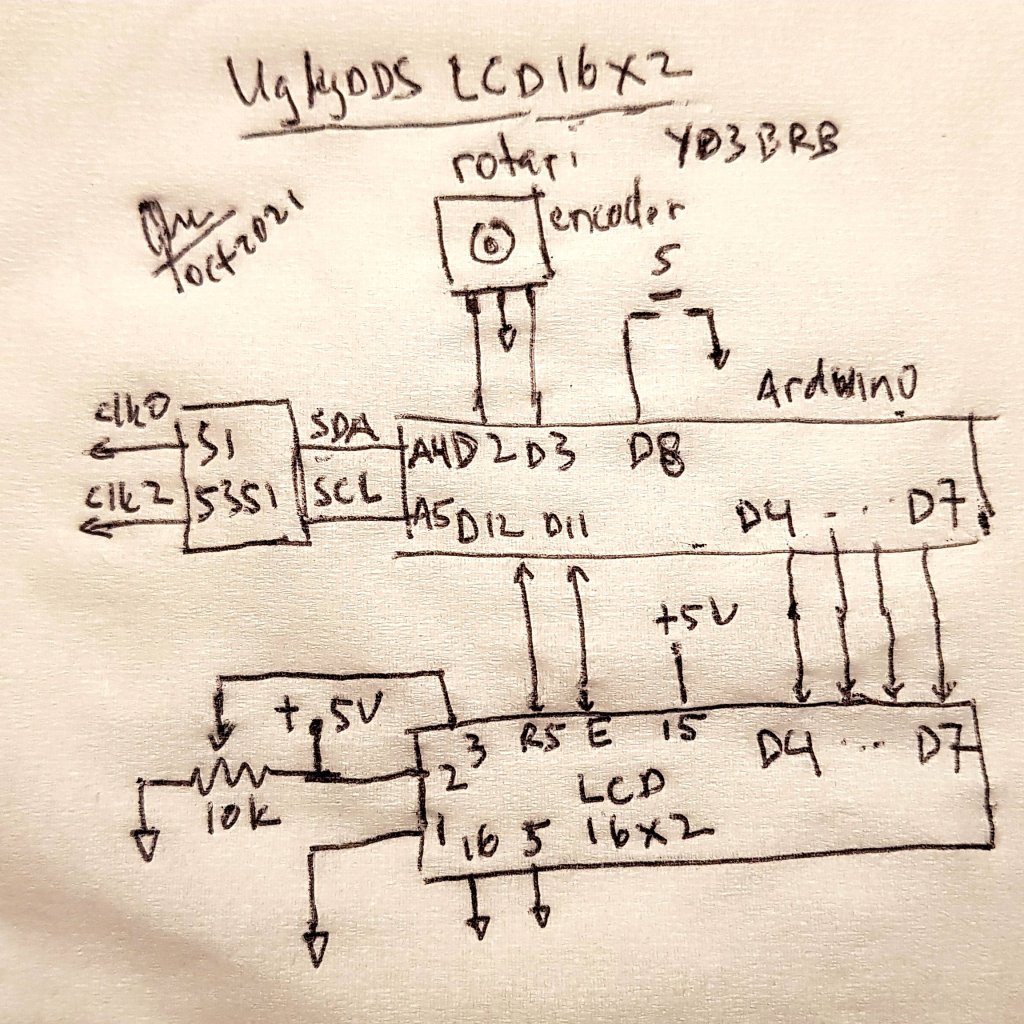 UglyDDS LCD16x2
YD3BRB
rotari
encoder
oct2021
S
Arduino
clk0
clk2
SI
5351
SDA
SCL
A4 D2 D3 D8
A5 D12 D11 D4 ... D7
+5V
+5V
10k
3 RS E 15 D4 ... D7
2 LCD
1 16 5 16x2